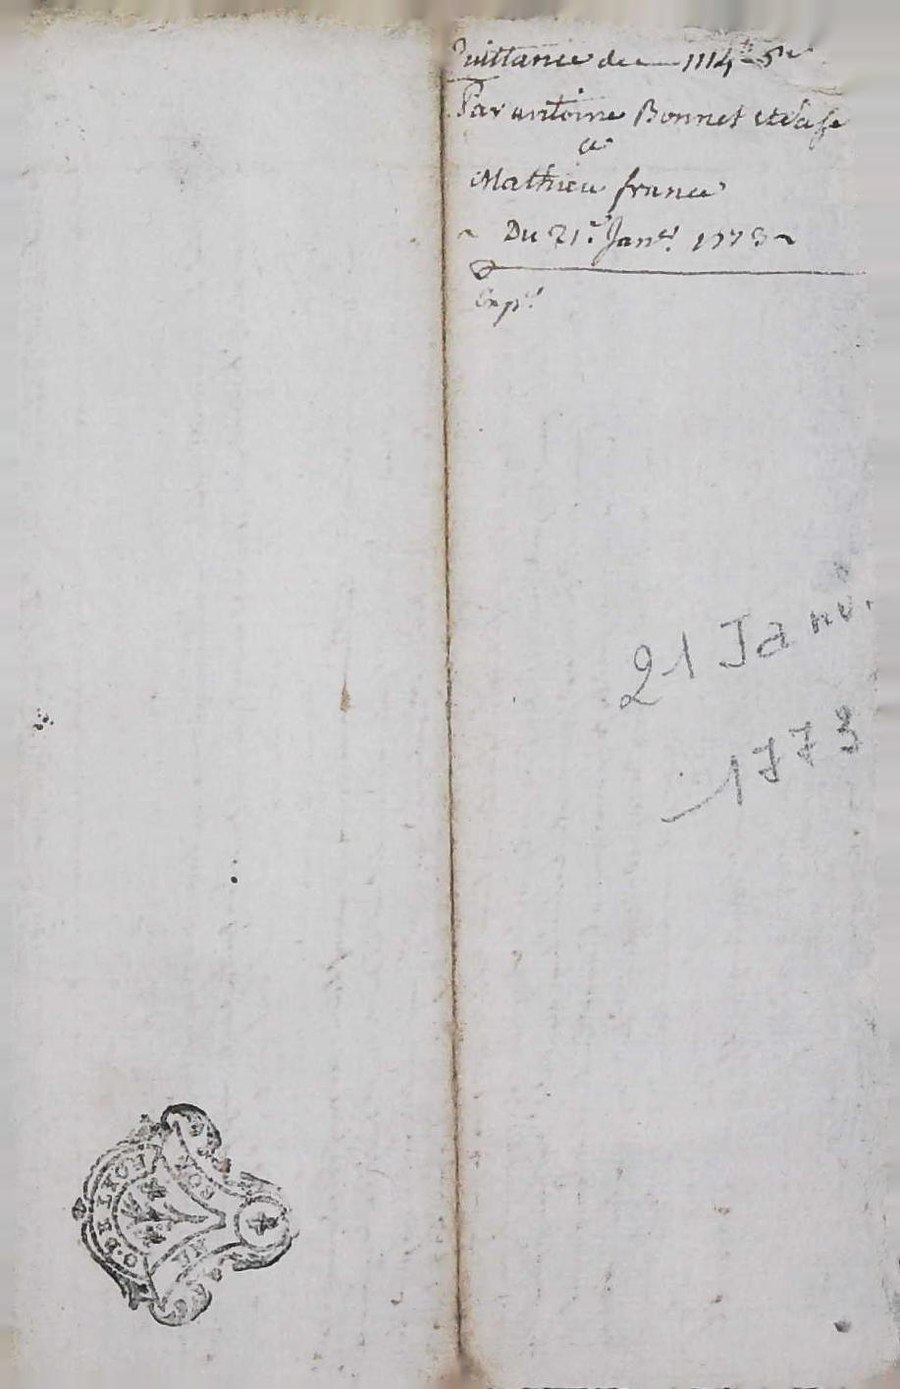 quittance de 1114tt 5s
Par antoine Bonnet et sa fe
a
Mathieu france
Du 21e Janer 1773
Exp
21 Janv.
1773
G. DE LYON